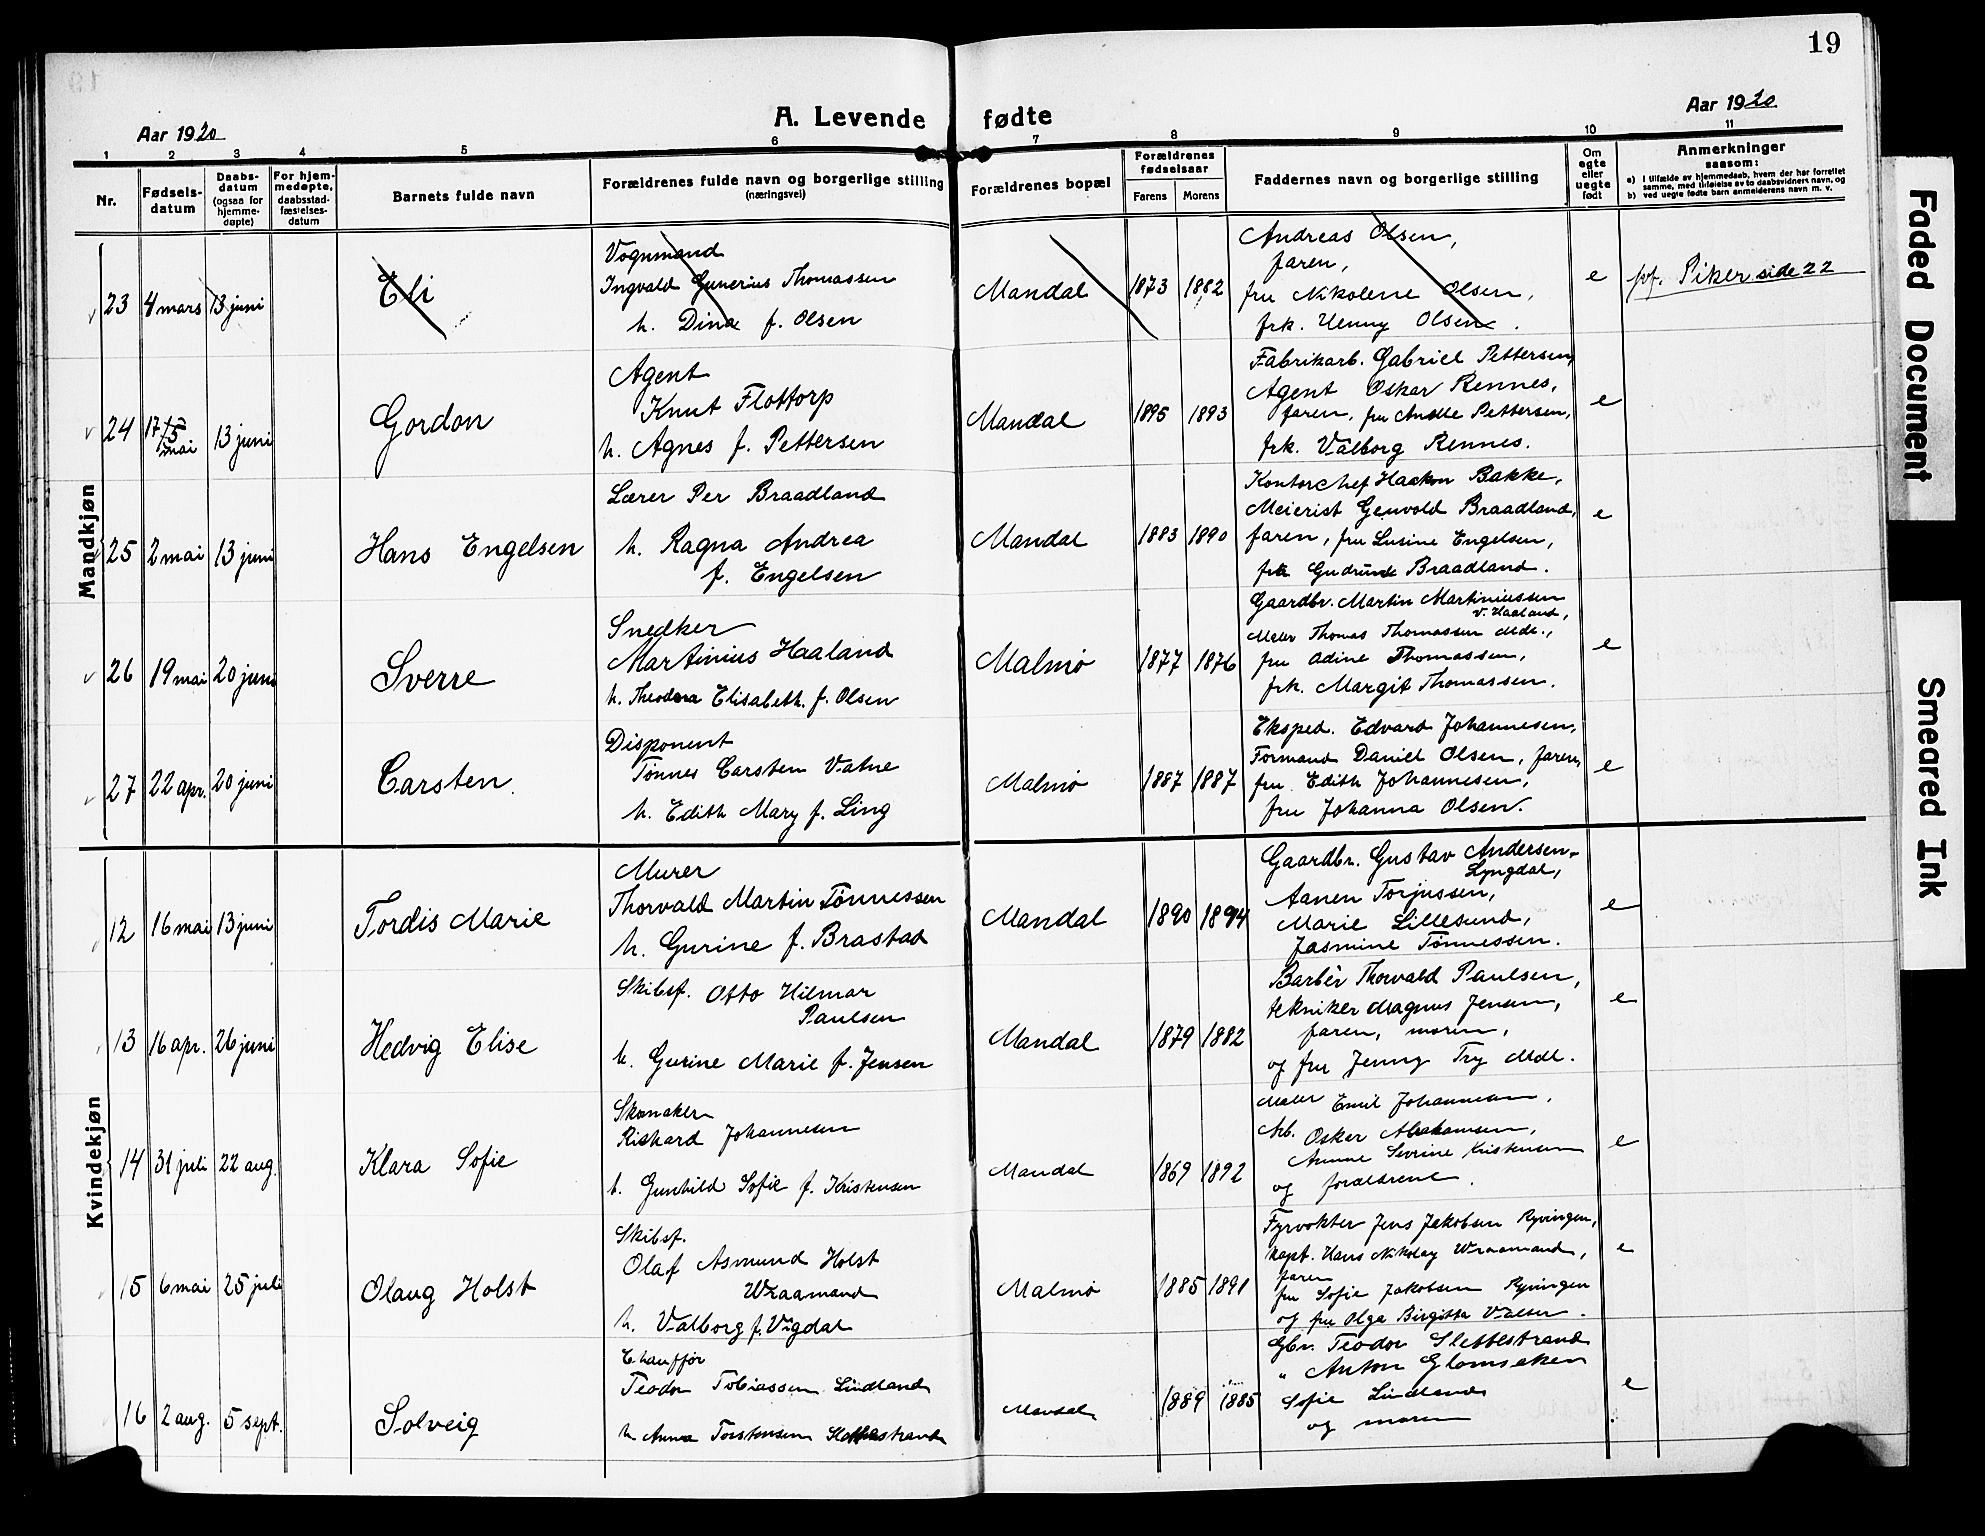 19
Aar 1920
A. Levende fødte
Aar 1920
1 2 3 4 5 6 7 8 9 10 11
Nr.
Fødsels-
datum
Daabs-
datum
(ogsaa for
hjemme-
døpte)
For hjem-
medøpte,
daabsstad-
fæstelses-
datum
Barnets fulde navn
Forældrenes fulde navn og borgerlige stilling
(næringsvei)
Forældrenes bopæl
Forældrenes
fødselsaar
Farens Morens
Faddernes navn og borgerlige stilling
Om
egte
eller
uegte
født
Anmerkninger
saasom:
a) i tilfælde av hjemmedaab, hvem der har forrettet
samme, med tilføielse av to daabsvidners navn, og
b) ved uegte fødte barn anmelderens navn m. v.
Mandkjøn
23 4 mars 13 juni
Eli
Vognmand
Ingvald Gunerius Thomassen
h. Dina f. Olsen
Mandal
1873 1882
Andreas Olsen,
faren,
fru Nikolene Olsen,
frk. Henny Olsen.
e
Piker side 22
24 17/5 mai 13 juni
Gordon
Agent
Knut Flottorp
h. Agnes f. Pettersen
Mandal
1895 1893
Fabrikarb. Gabriel Pettersen,
Agent Oskar Rennes,
faren, fru Pettersen,
frk. Valborg Rennes.
e
25 2 mai 13 juni
Hans Engelsen
Lærer Per Braadland
h. Ragna Andrea
f. Engelsen
Mandal
1883 1890
Kontorchef Haakon Bakke,
Meierist Braadland,
faren, fru Lusine Engelsen,
frk Gudrun Braadland.
e
26 19 mai 20 juni
Sverre
Snedker
Martinius Haaland
h. Theodora Elisabeth. f. Olsen
Malmø
1877 1876
Gaardbr. Martin Martiniussen
v. Haaland,
Maler Thomas Thomassen Mdl.,
fru Adine Thomassen,
frk. Margit Thomassen.
e
27 22 apr. 20 juni
Carsten.
Disponent
Tønnes Carsten Vatne
h. Edith Mary f. Ling
Malmø
1887 1887
Eksped. Edvard Johannesen,
Formand Daniel Olsen, faren,
fru Edith Johannesen,
fru Johanna Olsen.
e
Kvindekjøn
12 16 mai 13 juni
Tordis Marie
Murer
Thorvald Martin Tønnessen
h. Gurine f. Brastad
Mandal
1890 1894
Gaardbr. Gustav Andersen-
Lyngdal,
Aanen Torjussen,
Marie Lillesund,
Jasmine Tønnessen.
e
13 16 apr. 26 juni
Hedvig Elise
Skibsf. Otto Hilmar
Paulsen
h. Gurine Marie f. Jensen
Mandal
1879 1882
Barbér Thorvald Paulsen,
tekniker Magnus Jensen,
faren, moren,
og fru Jenny Try Mdl.
e
14 31 juli 22 aug.
Klara Sofie
Skomaker
Rikhard Johannesen
h. Gunhild Sofie f. Kristensen
Mandal
1869 1892
Maler Emil Johannesen,
Arb. Osker Abrahamsen,
Anne Severine Kristensen
og forældrene.
e
15 6 mai 25 juli
Olaug Holst
Skibsf.
Olaf Asmund Holst
Wraamand
h. Valborg f. Vigdal
Malmø
1885 1891
Fyrvokter Jens Jakobsen Ryvingen,
kapt. Hans Nikolay Wraamand,
faren
fru Sofie Jakobsen Ryvingen
og fru Olga Birgitta
e
16 2 aug. 5 sept.
Solveig
Chauffør
Teodor Tobiassen Lindland
h Anna Torstensen Slettestrand
Mandal
1889 1885
Gbr. Teodor Slettestrand
" Anton
Sofie Lindland
og moren
e
Faded Document
Smeared Ink